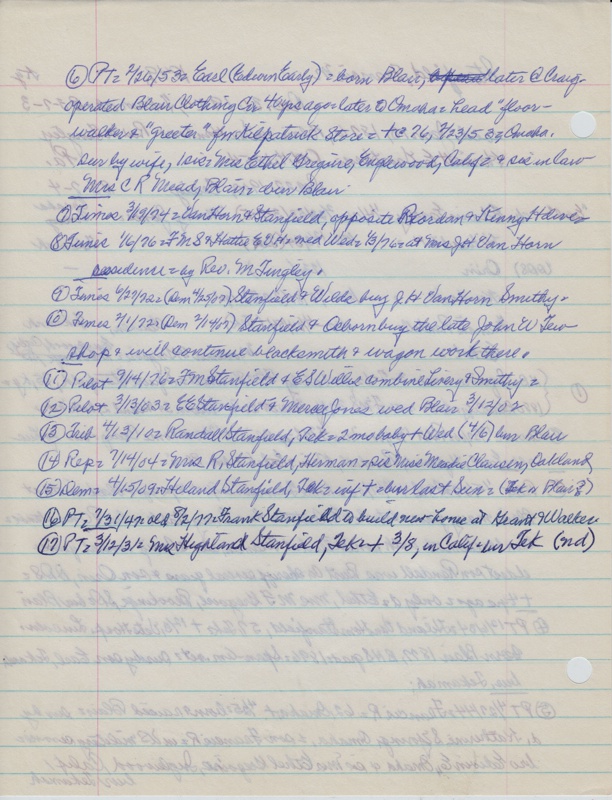 ⑥ PT= 7/26/53= Earl (Edwin Early) = born Blair, later @ Craig-
operated Blair Clothing Co 40 yrs ago= later to Omaha= head "floor-
walker & "greeter" for Kilpatrick Store= + @ 76, 7/23/53, Omaha.
Sur by wife, 1 sis: Mrs Ethel Gregoire, Englewood, Calif= & sis in law
Mrs C R Mead, Blair= bur Blair
⑦ Times 3/19/74= Van Horn & Stanfield, opposite Reordan & Kenny Hdwe=
⑧ Times 1/6/76= F M S & Hattie E V H= wed Wed= 1/3/76= at Mrs J H Van Horn
residence= by Rev. McTingley.
⑨ Times 6/27/72= (Dem 4/25/07) Stanfield & Wilde buy J H Van Horn Smithy=
⑩ Times 7/1/72= (Dem 2/14/07) Stanfield & Osborn buy the late John W Tew
shop & will continue blacksmith & wagon work there.
⑪ Pilot 9/14/76= F M Stanfield & E S Willis combine Livery & Smithy=
⑫ Pilot 3/13/03= E E Stanfield & Mercy Jones wed Blair 3/12/02
⑬ Trib 4/13/10= Randall Stanfield, Tek= 2 mo baby + Wed (4/6) bur Blair
⑭ Rep= 7/14/04= Mrs R. Stanfield, Herman= sis Miss Maude Clausen, Oakland
⑮ Dem= 4/15/09= Heland Stanfield, Tek= inf + = bur last Sun= (Tek or Blair?)
⑯ PT= 7/31/47= old 8/2/77= Frank Stanfield to build new home at Grant & Walker
⑰ PT= 3/12/31= Mrs Highland Stanfield, Tek= + 3/8, in Calif= bur Tek (nd)